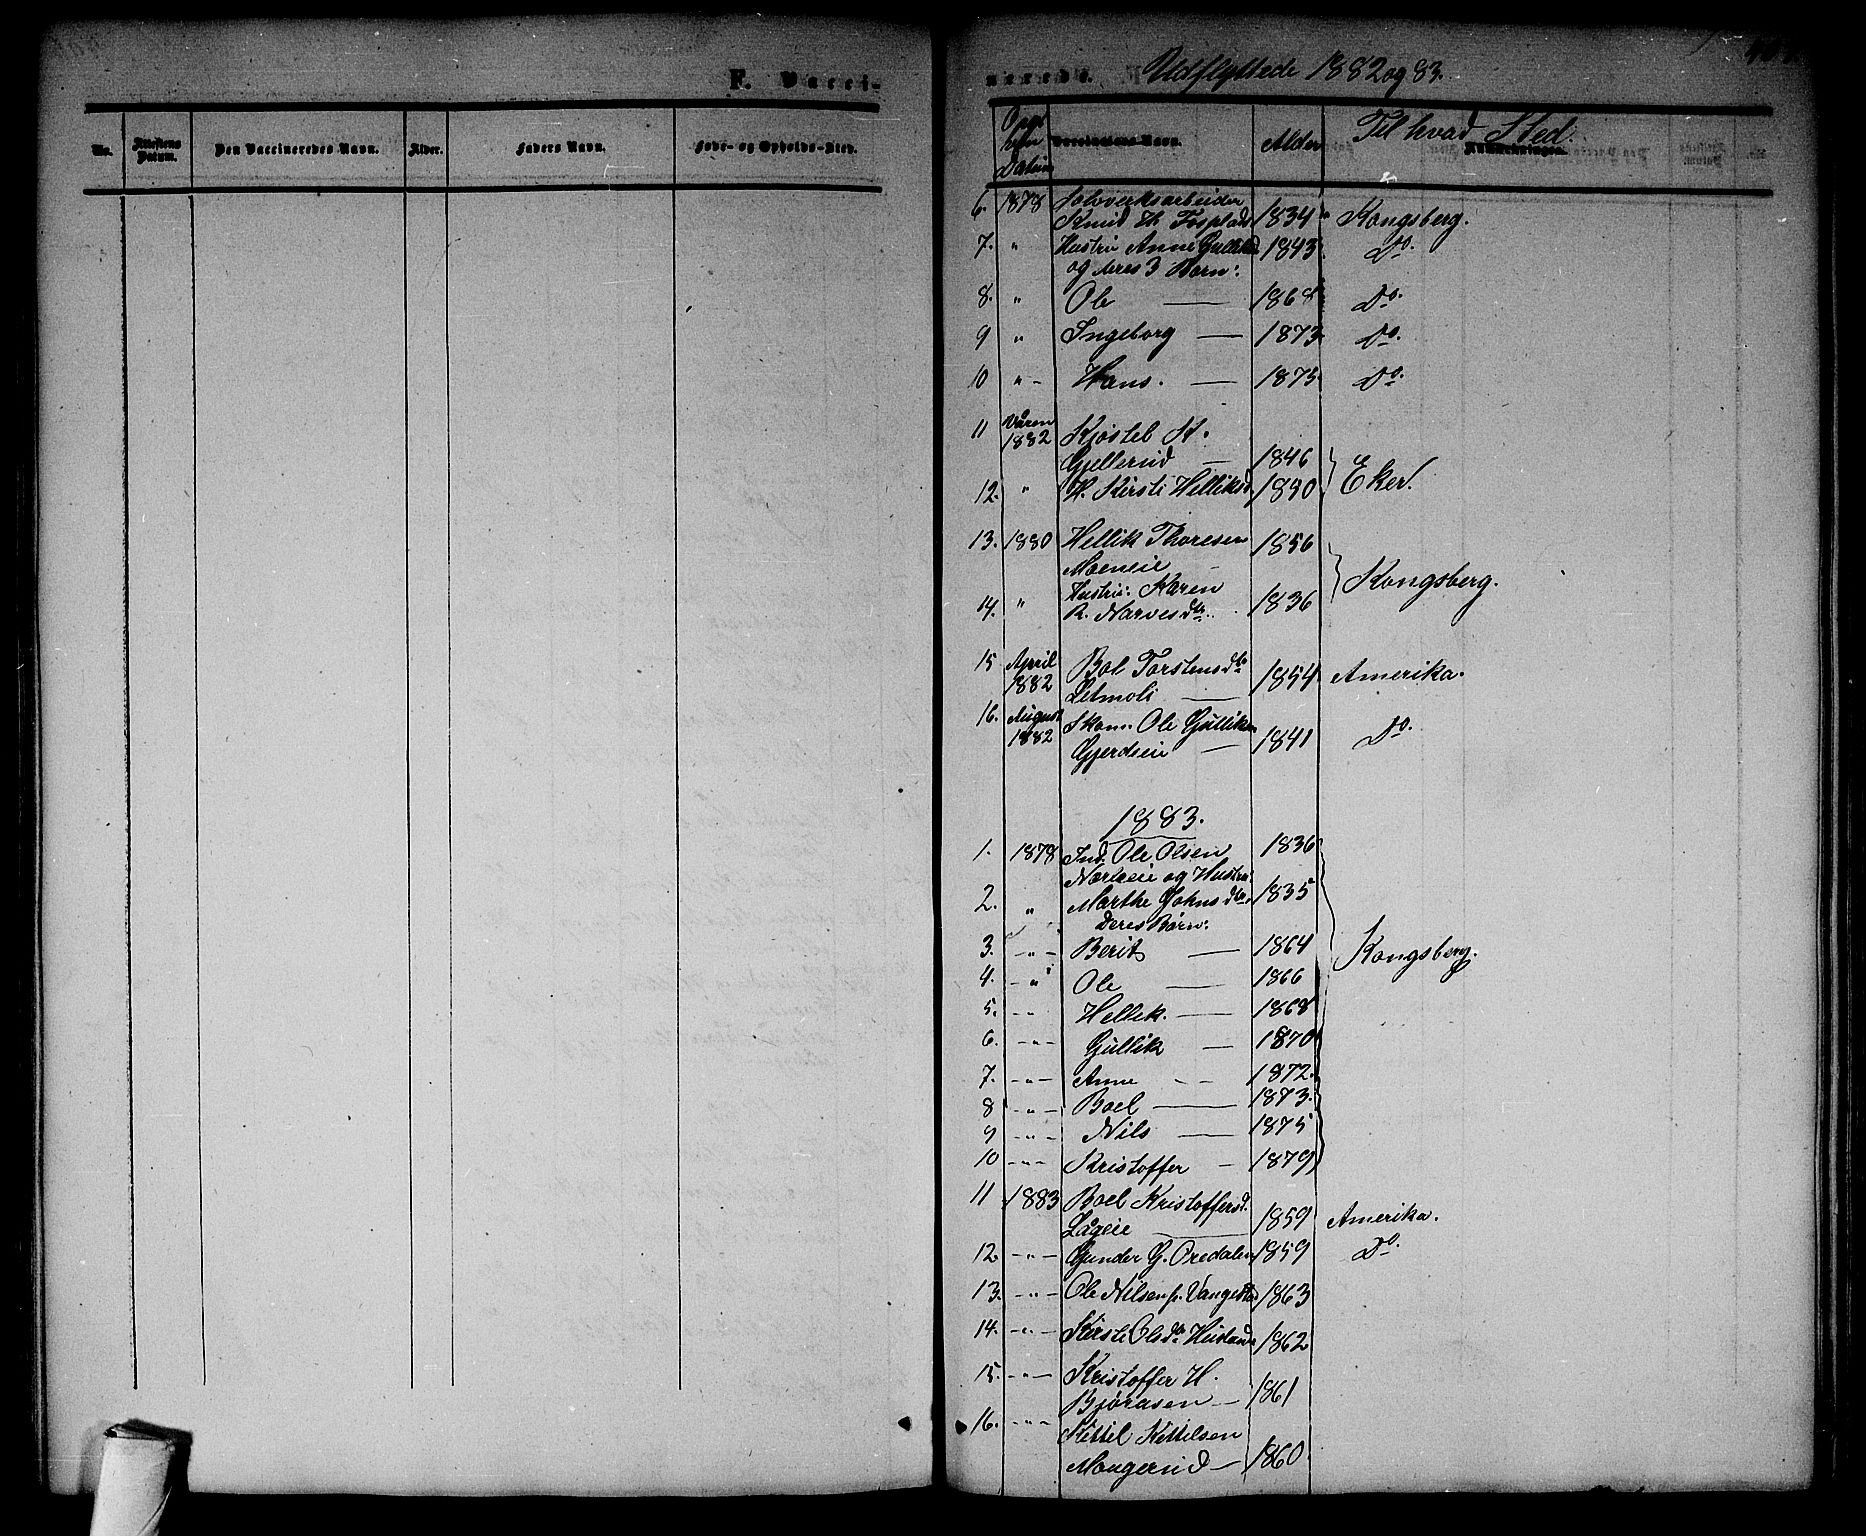 F. Vacci-
No.
Attestens Datum.
Den Vaccineredes Navn.
Alder.
Faders Navn.
Føde- og Opholds-Sted.
nerede. Udflyttede 1882 og 83.
Datum
Alder
Til hvad Sted.
Anmærkninger.
6. 1878 Sølvverksarbeider
Knud H. Fosplads 1834 Kongsberg.
7. " Hustru Anne Gulliksd 1843. Do.
og deres 3 Børn:
8. " Ole — 1868 Do.
9 " Ingeborg — 1873 Do.
10 " - Hans. — 1875 Do.
11 Våren
1882 Kjøstel K.
Gjellerud — 1846
Eker.
12. " H. Kirsti Helliksd 1890
13. 1880 Hellik Thoresen 1856
Moeneie -
Kongsberg.
Hustru: Karen
14. " R. Narvesdtr. 1836
15 April Bol Torstensdtr
1882 Letmoli — 1854 Amerika.
16. August Skom. Ole Gulliksen
1882 Gjerdseie — 1841 Do.
1883.
1. 1878 Ind. Ole Olsen 1836
og Hustru:
2. " Marthe Johnsdtr. 1835
Deres Børn:
3. - " - Berit — 1864
Kongsberg.
4. - " Ole — 1866
5. - " - Hellik. — 1868
6. - " - Gullik — 1870
7. - " - Anne - - 1872.
8 - " - Boel — 1873.
9 - " - Nils — 1875
10 - " - Kristoffer - 1879
11 1883 Boel Kristoffersd.
Lågeie — 1859 Amerika.
12. - " - Gunder G. Oredalen 1859 Do.
13. - " - Ole Nilsen p. Vangestad 1863
14. - " - Kirsti Olsdtr 1862
15. - " - Kristoffer H.
Bjøråsen — 1861
16. - " - Kittil Kittilsen
Mongerud — 1860